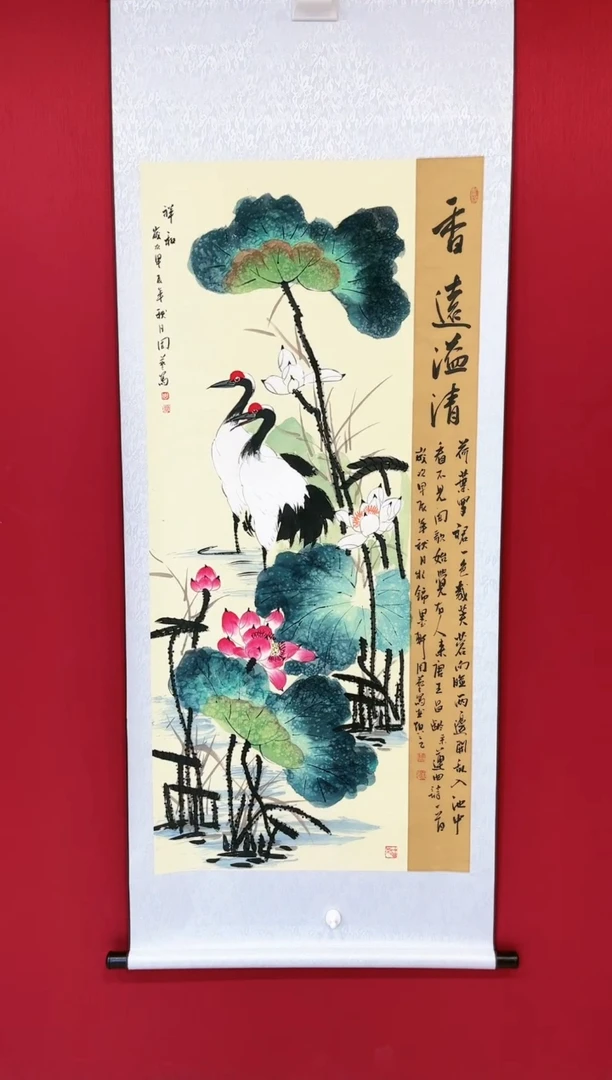 香遠溢清
荷葉羅裙一色裁芙蓉向臉兩邊開乱入池中
看不見闻歌始覺有人来唐王昌齡采蓮曲詩一首
歲次甲辰年秋月於錦墨軒周
祥和
歲次甲辰年秋月周